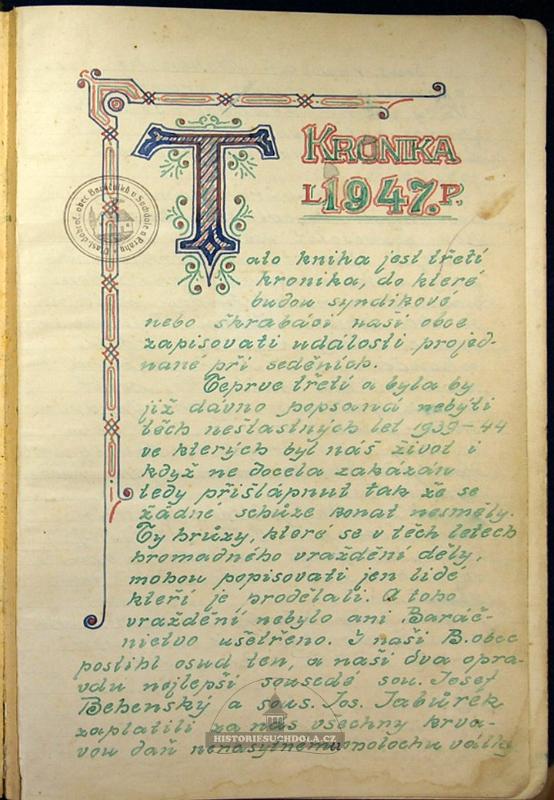 KRONIKA
L. 1947. P.
Tato kniha jest třetí
kronika, do které
budou syndikové
nebo škrabáci naší obce
zapisovati události projed-
nané při seděních.
Teprve třetí a byla by
již dávno popsaná nebýti
těch nešťastných let 1939-44
ve kterých byl náš život i
když ne docela zakázán
tedy přišlápnut tak že se
žádné schůze konat nesměly.
Ty hrůzy, které se v těch letech
hromadného vraždění děly,
mohou popisovati jen lidé
kteří je prodělali. A toho
vraždění nebylo ani Baráč-
nictvo ušetřeno. I naši B.obec
postihl osud ten, a naši dva opra-
vdu nejlepší sousedé sou. Josef
Behenský a sous. Jos. Jabůrek
zaplatili za nás všechny krva-
vou daň nenasytnému molochu války
HISTORIESUCHDOLA.CZ